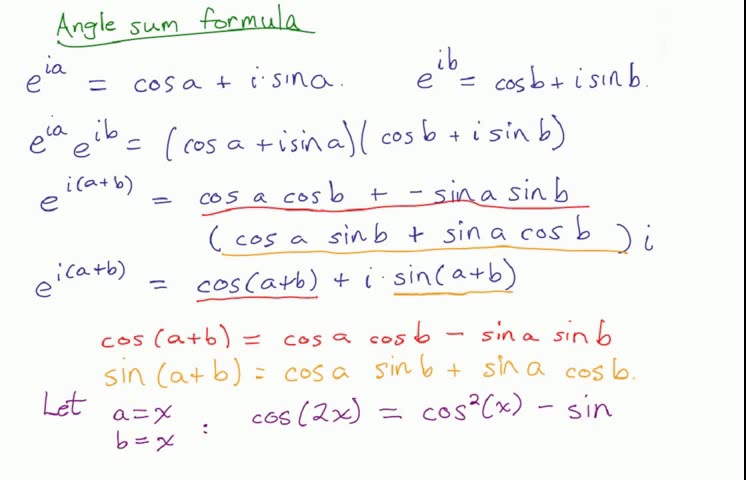 Angle sum formula
e^{ia} = cos a + i·sin a.    e^{ib} = cos b + i sin b.
e^{ia} e^{ib} = (cos a + i sin a)(cos b + i sin b)
e^{i(a+b)} = cos a cos b + - sin a sin b
(cos a sin b + sin a cos b) i
e^{i(a+b)} = cos(a+b) + i·sin(a+b)
cos(a+b) = cos a cos b - sin a sin b
sin(a+b) = cos a sin b + sin a cos b.
Let a=x : cos(2x) = cos²(x) - sin
b=x